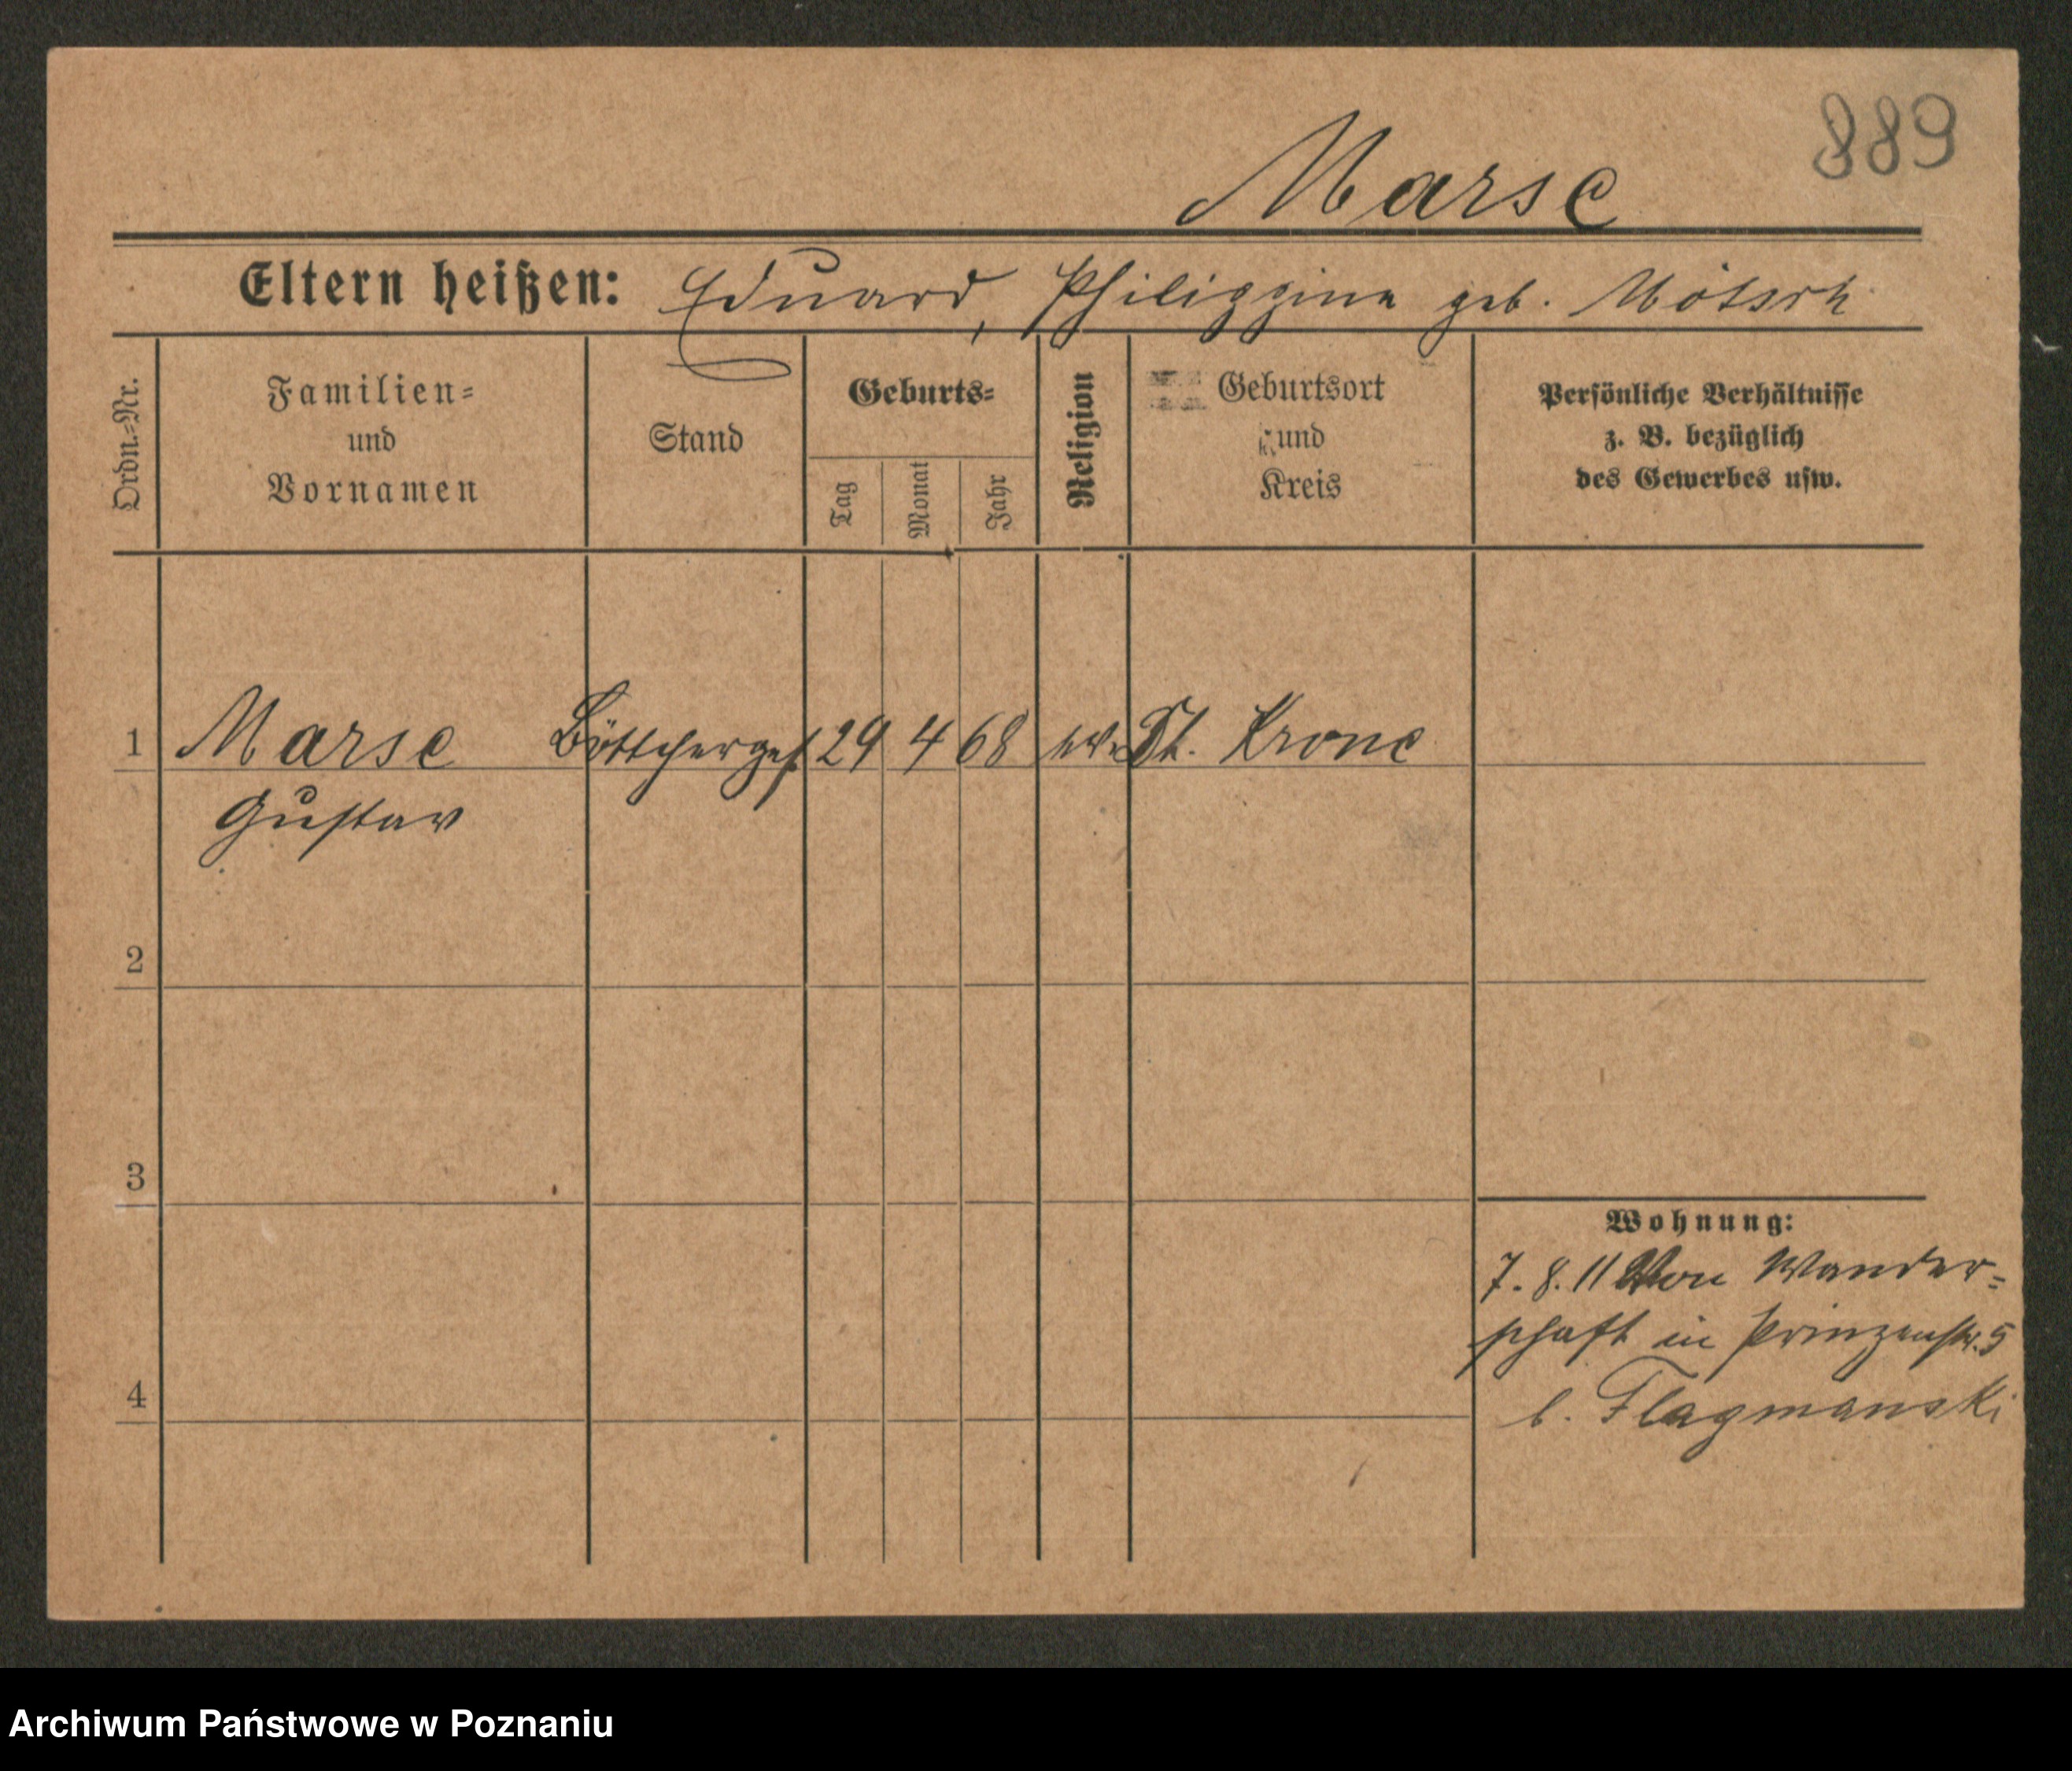 889
Marse
Eltern heißen: Eduard, Philippine geb.
Ordn.-Nr.
Familien-
und
Vornamen
Stand
Geburts-
Tag
Monat
Jahr
Religion
Geburtsort
und
Kreis
Persönliche Verhältnisse
z. B. bezüglich
des Gewerbes usw.
1 Marse Böttcherges. 29 4 68 Dt. Krone
Gustav
2
3
Wohnung:
7. 8. 11 Von Wander-
schaft in Prinzenstr. 5
4
b. Flagmanski
Archiwum Państwowe w Poznaniu